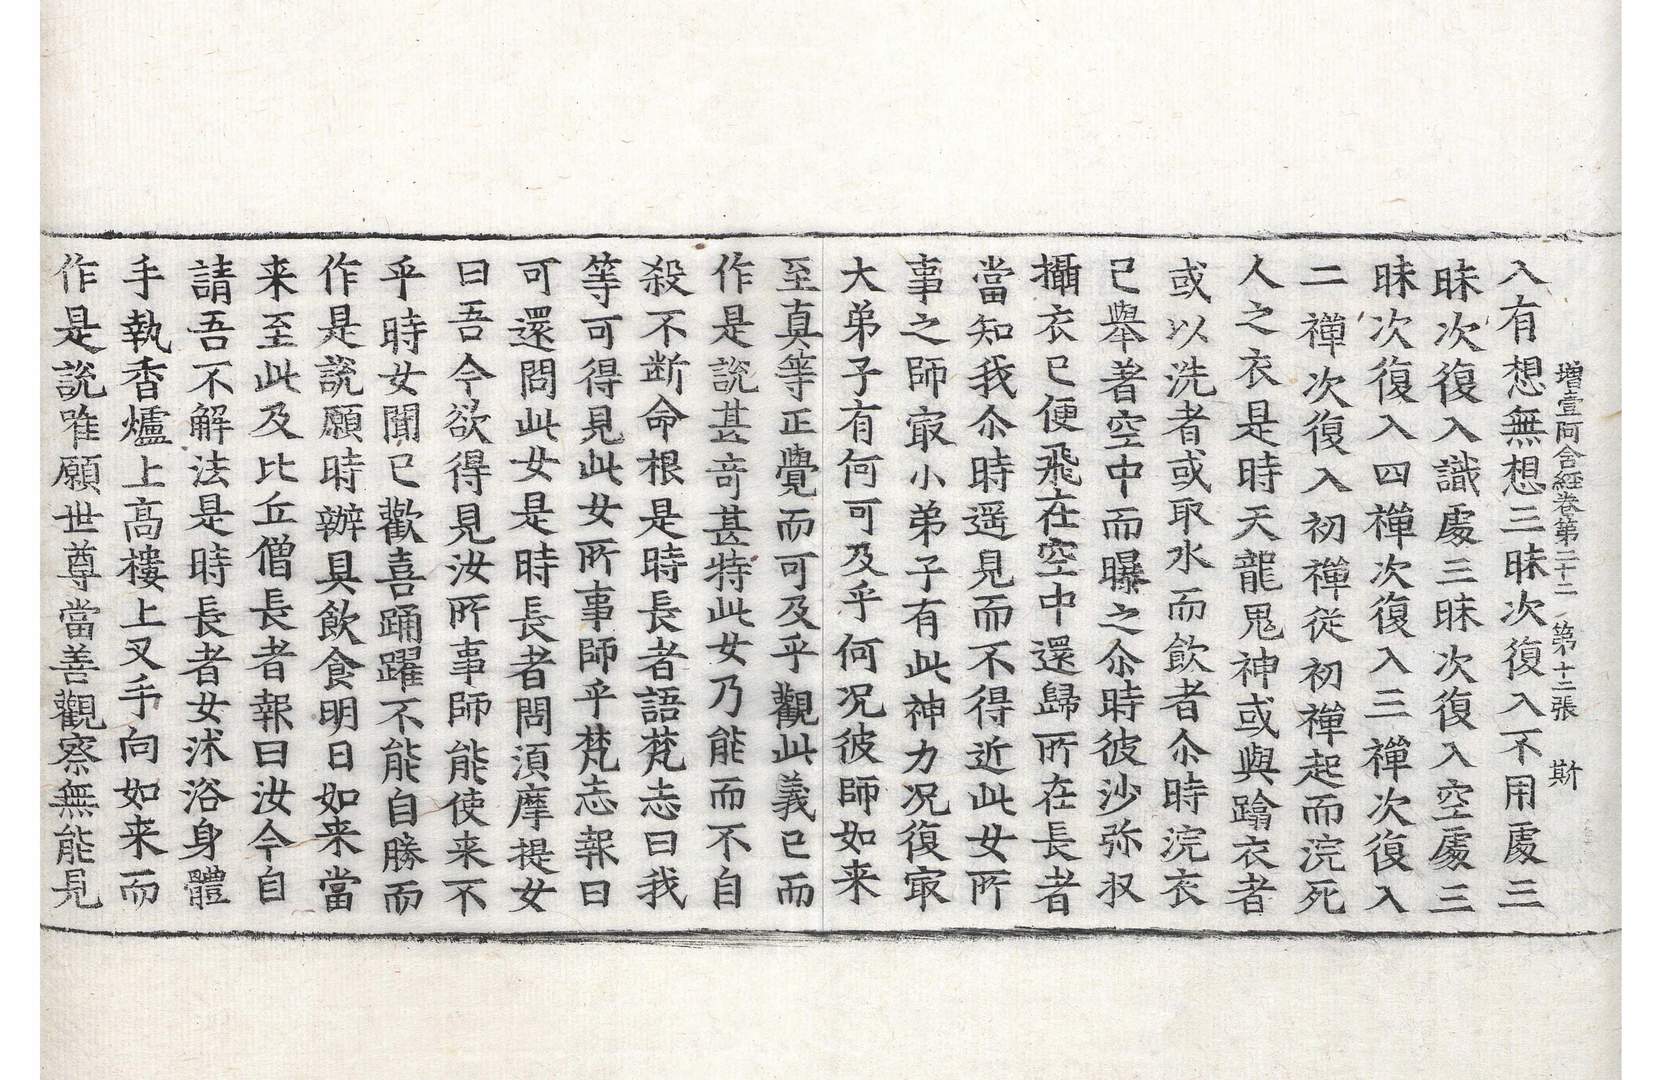 增壹阿含經卷第二十二　第十二張　斯
入有想無想三昧次復入不用處三
昧次復入識處三昧次復入空處三
昧次復入四禪次復入三禪次復入
二禪次復入初禪從初禪起而浣死
人之衣是時天龍鬼神或與蹹衣者
或以洗者或取水而飲者尒時浣衣
已舉著空中而曝之尒時彼沙弥收
攝衣已便飛在空中還歸所在長者
當知我尒時遥見而不得近此女所
事之師㝡小弟子有此神力况復㝡
大弟子有何可及乎何况彼師如来
至真等正覺而可及乎觀此義已而
作是説甚竒甚特此女乃能而不自
殺不断命根是時長者語梵志曰我
等可得見此女所事師乎梵志報曰
可還問此女是時長者問湏摩提女
曰吾今欲得見汝所事師能使来不
乎時女聞已歡喜踊躍不能自勝而
作是説願時辦具飲食明日如来當
来至此及比丘僧長者報曰汝今自
請吾不解法是時長者女沐浴身體
手執香爐上髙樓上叉手向如来而
作是説唯願世尊當善觀察無能見